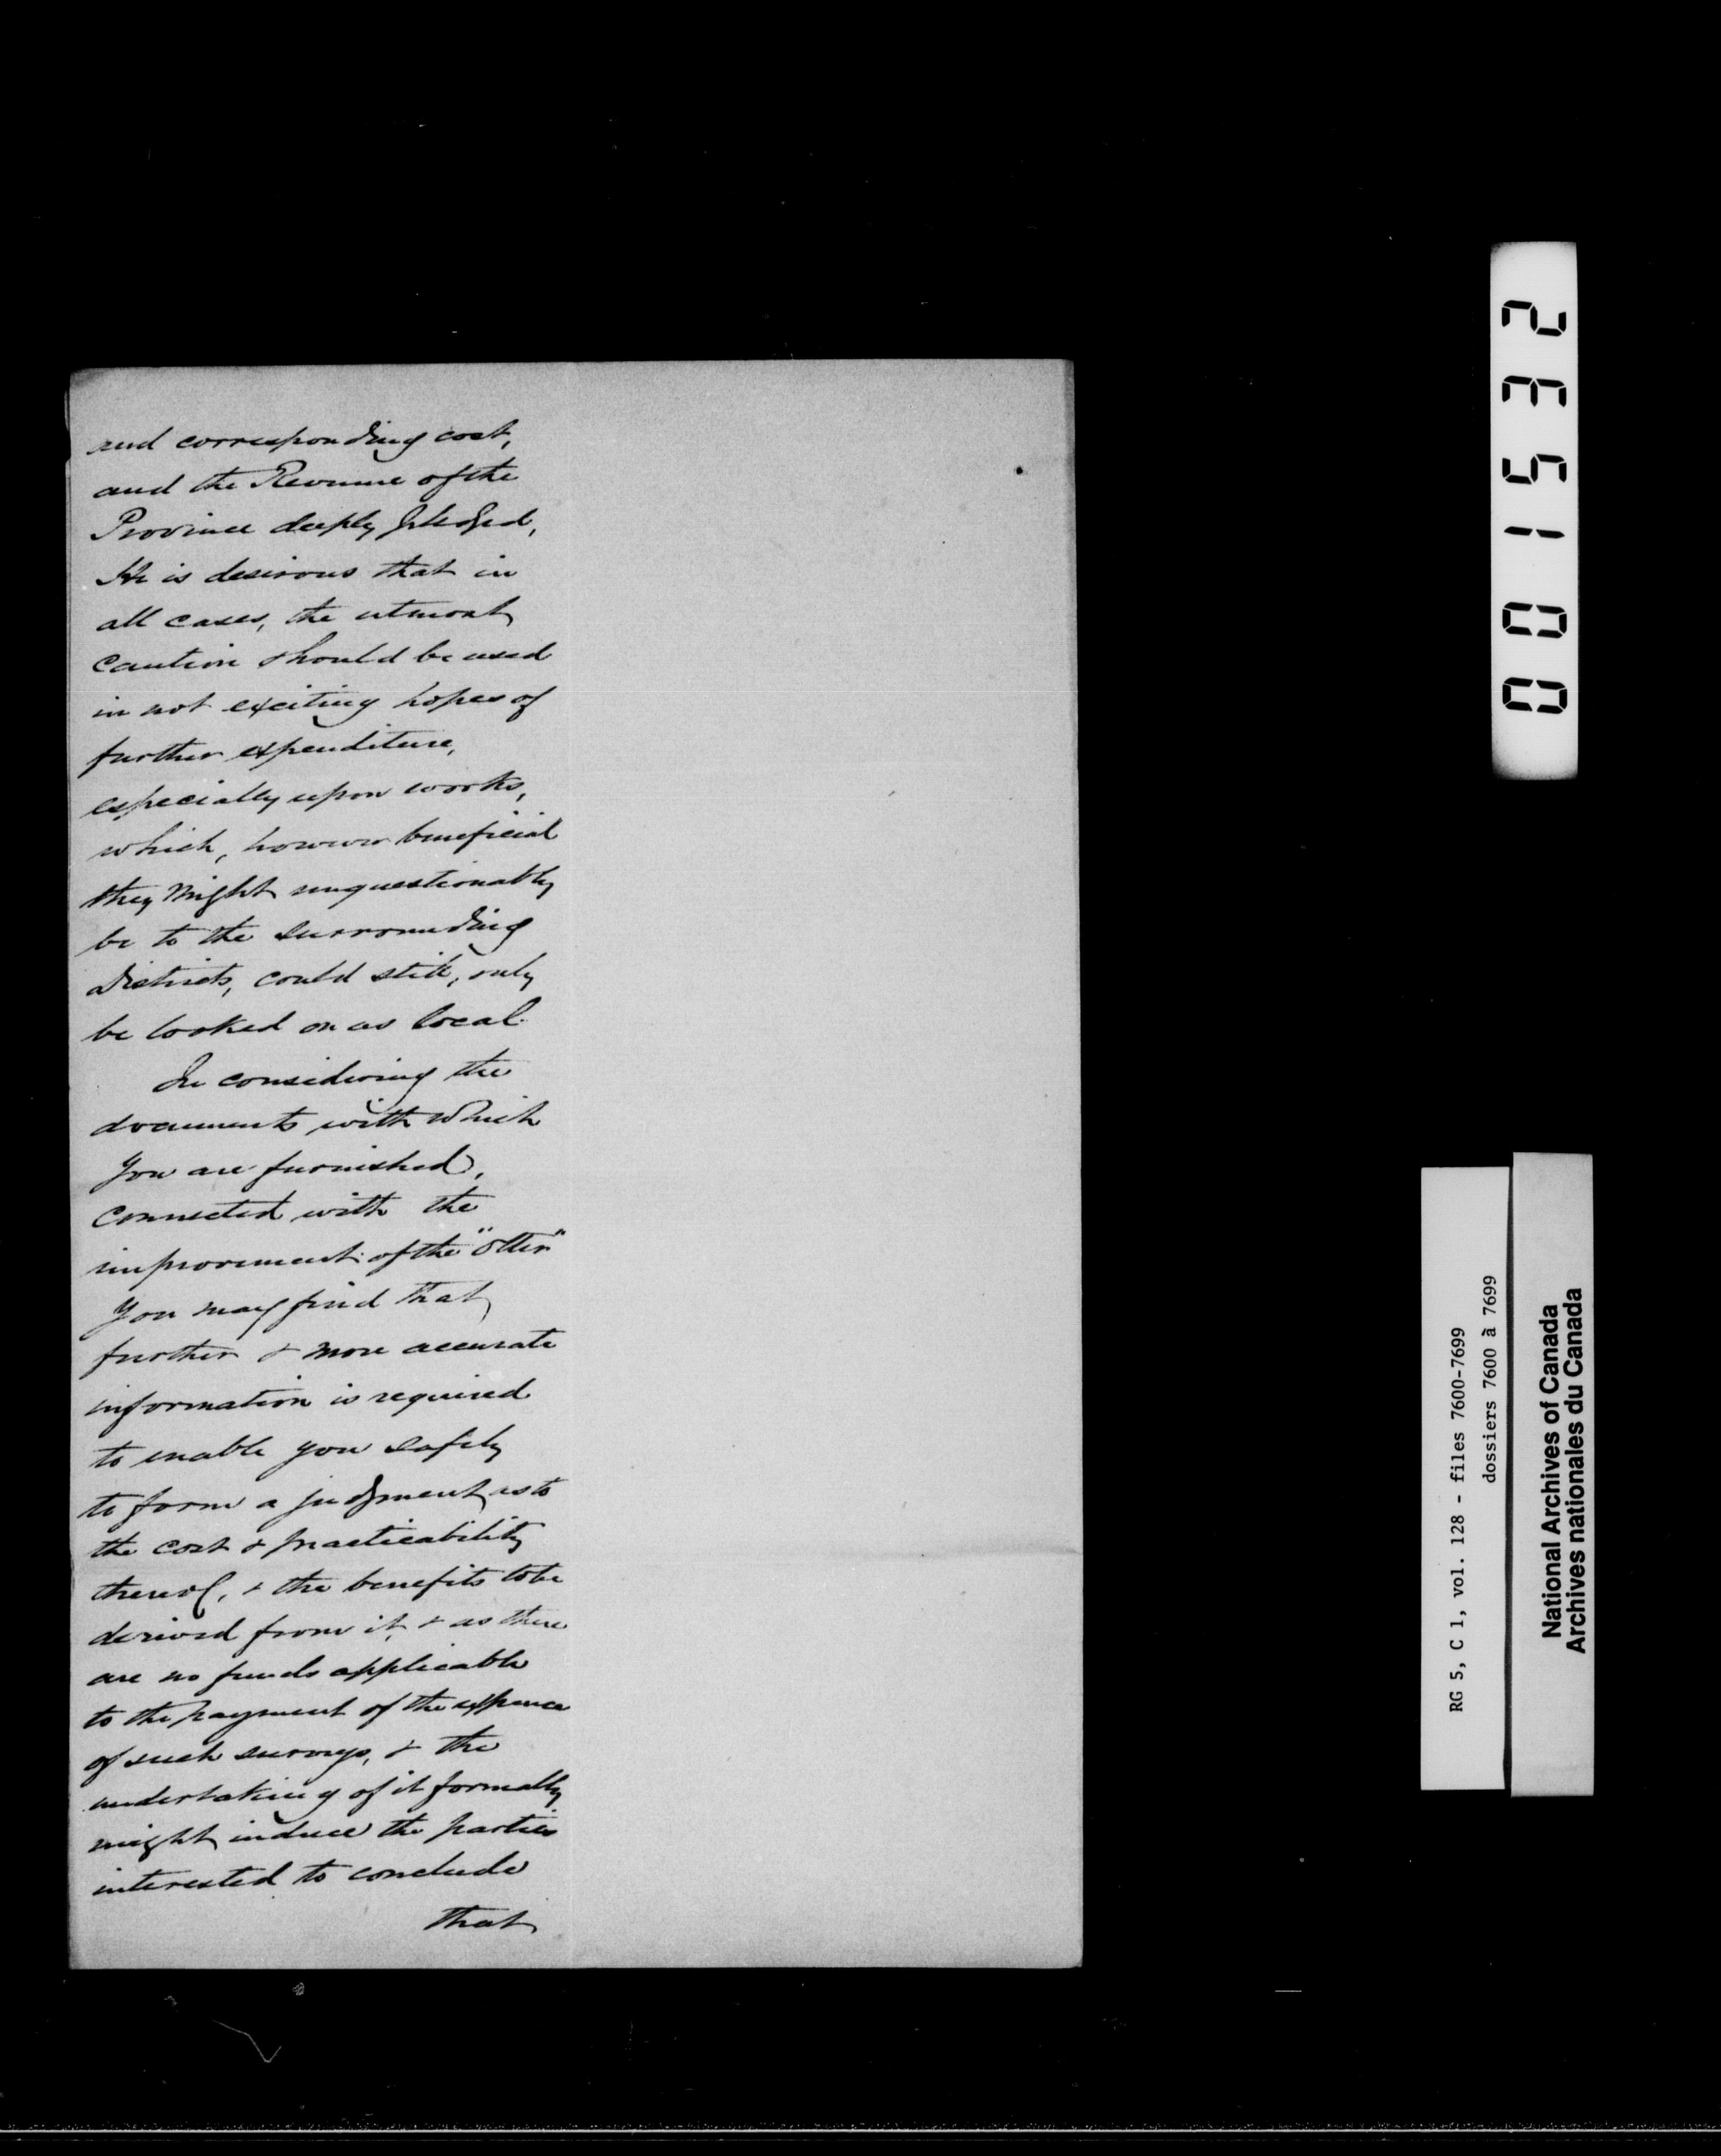 and corresponding cost,
and the Revenue of the
Province deeply pledged,
He is desirous that in
all cases, the utmost
caution should be used
in not exciting hopes of
further expenditure,
especially upon works,
which, however beneficial
they might unquestionably
be to the surrounding
districts, could still, only
be looked on as local.
In considering the
documents with which
you are furnished,
connected with the
improvement of the "Otter"
you may find that
further & more accurate
information is required
to enable you safely
to form a judgment as to
the cost & practicability
thereof, & the benefits to be
derived from it, & as there
are no funds applicable
to the payment of the expence
of such surveys, & the
undertaking of it formally
might induce the parties
interested to conclude
that
001532
RG 5, C 1, vol. 128 - files 7600-7699
dossiers 7600 à 7699
National Archives of Canada
Archives nationales du Canada